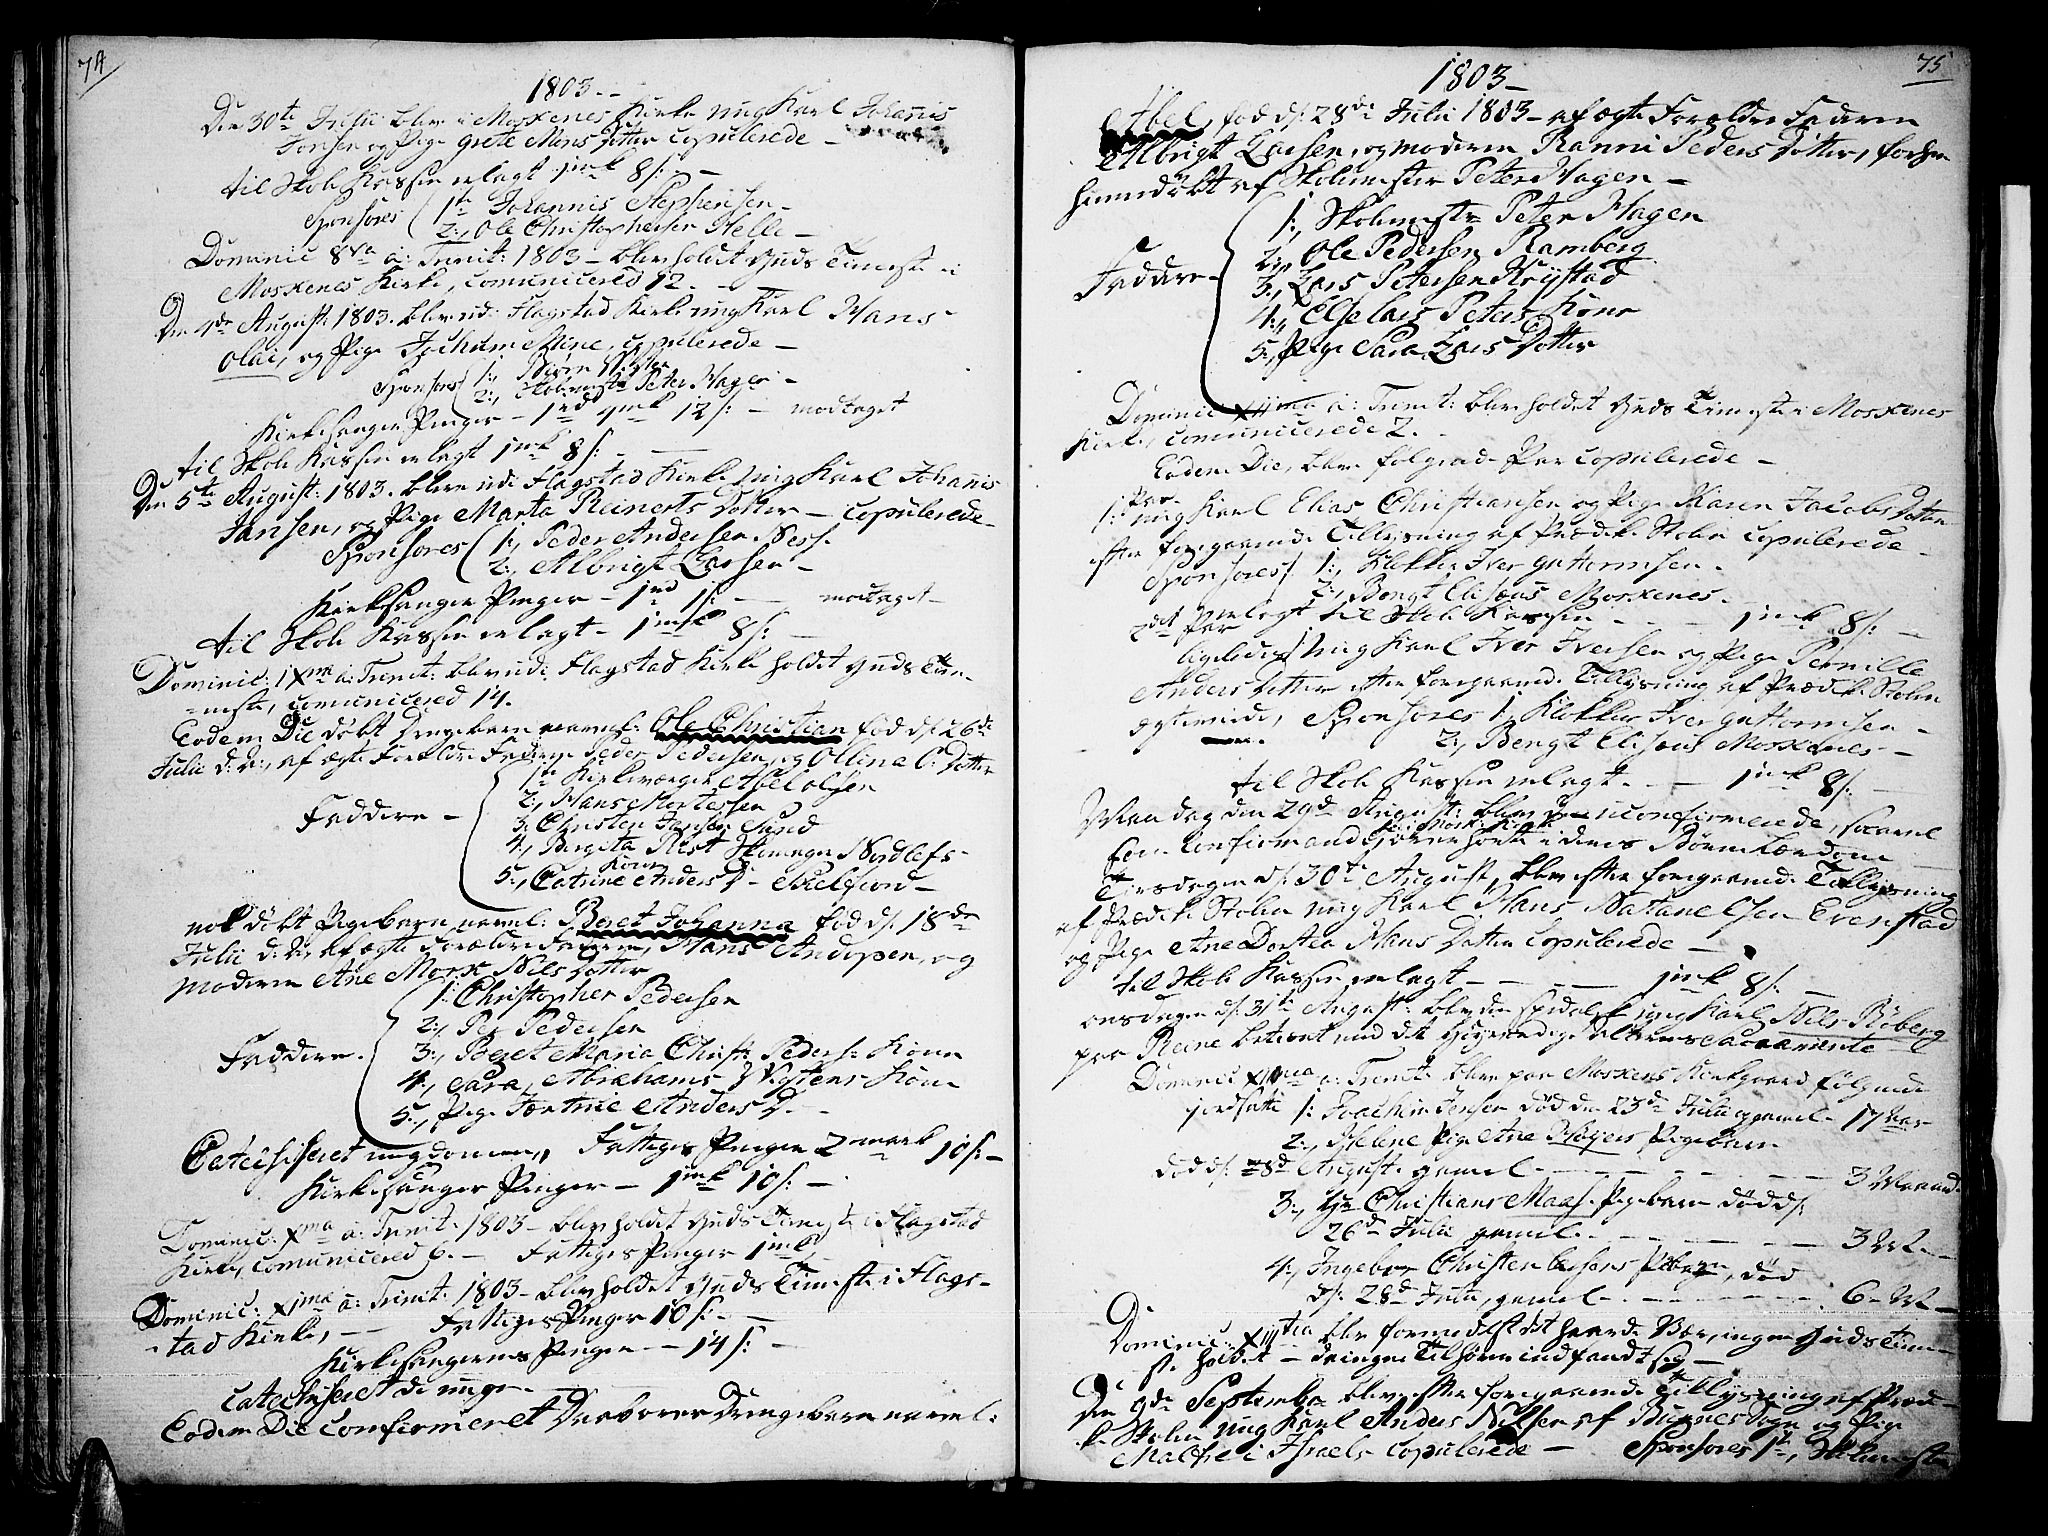 74
1803.-
Den 30te Julii blev i Moskenes Kirke ung Karl Johannis
Jonsen og Pige Grete Mons Dotter Copulerede -
til Skole Kassen erlagt 1 mk 8 s: -
Sponsores 1te Johannis Stephensen -
2:, Ole Christophersen Helle -
Dominic 8va a: Trenit: 1803 - blev holdt Guds Tieneste i
Moskenes Kirke, comunicered 12. -
Den 4de August: 1803. blev udi Flagstad Kirke ung Karl Hans
Olai, og Pige Jochumine, copulerede -
Sponsores 1:, Biørn
2:, Skolemester Peter Hagen -
Kirkesanger Penger - 1 rd 1 mk 12 s: - modtaget
til Skole Kassen erlagt 1 mk 8 s: -
Den 5te August: 1803. blev udi Flagstad Kirke ung Karl Johanis
Jansen, og Pige Marta Reinerts Dotter - copulerede -
Sponsores 1:, Peder Andersen Ness.
2:, Albrigt Larsen -
Kirkesanger Penger - 1 rd 1 s: - modtaget -
til Skole Kassen erlagt - 1 mk 8 s: -
Dominic: IXna a: Trenit: blev udi Flagstad Kirke holdet Guds Tie-
-neste, comunicered 14.
Eodem Die døbt Drengebarn navnl: Ole Christian fød d: 26de
Julii d: A:, af ægte Forældre Faderen Peder Pedersen, og Ollina O: Dotter
1te Kirkeværger Abel Olsen
2:, Hans Mortessen
Faddere - 3: Christen Jansen Sund
4:, Birgita Rist Skomager Nordlefs-
Kone
5:, Catrine Anders D - Skelfiord -
nok døbt Pigebarn navnl: Beret Johanna fød d: 18de
Julii d: A: af ægte Forældre Faderen, Hans Andersen, og
Moderen Ane Marx Nils Dotter
1: Christopher Pedersen
2:, Per Pedersen
Faddere. 3:, Beret Maria Christ: Peders: Kone
4:, Sara, Abrahams Kone
5:, Pige Jærtrue Anders D. -
Catechiseret ungdomen, Fattiges Penger 2 mark 10 s: -
Kirkesanger Penger - 1 mk 10 s: -
Dominic: Xma a: Trenit: 1803 - blev holdet Guds Tieneste i Flagstad
Kirke, comunicered 6. - Fattiges Penger 1 mk -
Dominic: XIma a: Trenit: 1803 - blev holdet Guds Tieneste i Flags-
-tad Kirke, - Fattiges Penger 10 s: -
Kirkesangernes Penger - 14 s: -
Catechiseret de unge. -
Eodem Die Comfirmeret Drabores Drengebarn navnl:
75
1803 -
Abel, fød d: 28de Julii 1803 - af ægte Forældre Faderen
Albrigt Larsen, og moderen Ranni Peders Dotter, forhen
hiemdøbt af Skolemester Peter Hagen -
1:, Skolemester Peter Hagen
2:, Ole Pedersen Ramberg
Faddere - 3:, Lars Petersen Krÿstad
4:, Else Lars Peters Kone
5:, Pige Sara Lars Dotter
Dominic XIIma a: Trenit: blev holdet Guds Tieneste i Moskenes
Kirke, comunicerede 2. -
Eodem Die, blev følgende Par Copulerede -
1: Par ung Karl Elias Christiansen og Pige Karen Jacobs Dotter
efter foregaaende Tillysning af Prædike Stolen Copulerede -
Sponsores 1:, Klokker Iver Guttormsen -
2:, Bengt Elisæus Moskenes -
erlagt til Skole Kassen - - - 1 mk 8 s: -
2det Par ligeledes ung Karl Iver Iversen og Pige Pernille
Anders Dotter efter foregaaende Tillysning af Prædike Stolen
egteviede, Sponsores 1, Klokker Iver Guttormsen -
2:, Bengt Elisæus Moskenes -
til Skole Kassen erlagt. - - 1 mk 8 s: -
Mandag den 29de August: blev uconfirmerede, saavel
som confirmande i Mosk: Kirke overhørte i deres Børne Lærdom
Tirsdagen d: 30te August, blev efter foregaaende Tillysning
af Prædike Stolen ung Karl Hans Natanelsen Evenstad
og Pige Ane Dortea Hans Dotter Copulerede -
til Skole Kassen erlagt - - 1 mk 8 s: -
onsdagen d: 31te August: blev den spedalsk ung Karl Nils Røberg
paa Reine betient med det Høyværdige Alterens Sacramente
Dominic XIIIma a: Trenit: blev paa Moskenes Kirkegaard følgende
jordsatte 1: Joachim Jensen død den 23de Julii gammel - 17 aar
2:, Helene Pige Ane Hÿgers Pigebarn
død d: 28de August: gamel. - - - 3 Maaned.
3:, Hr Christians Maas. Pigebarn død d:
26de Julii gamel. - - - 3 M. -
4:, Ingebor Christenbersens Pbarn, død
d: 28de Julii, gamel - - - 6 - M -
Dominic: XIIIItia blev formedelst det haarde Veer, ingen Guds Tiene-
ste holdet - da ingen Tilhørere indfandt sig -
Den 9de September blev efter foregaaende Tillysning af Præd-
ke Stolen ung Karl Anders Nilsen af Buxnes Sogn og Pige
Malene Israels Copulerede - Sponsores 1t, Skolemester